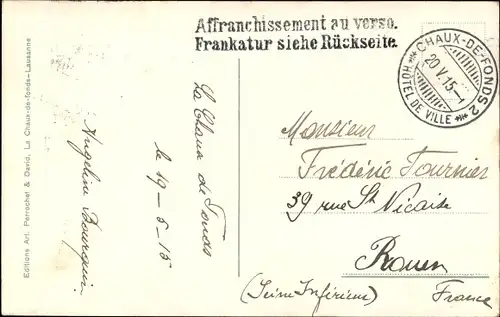 Affranchissement au verso.
Frankatur siehe Rückseite.
CHAUX-DE-FONDS 2
20.V.15-1
HÔTEL DE VILLE
Editions Art. Perrochet & David, La Chaux-de-fonds-Lausanne
La Chaux de Fonds
le 19-5-15
Angelin Bourquin
Monsieur
Frédéric Tournier
39 rue St Nicaise
Rouen
(Seine Inférieure)
France